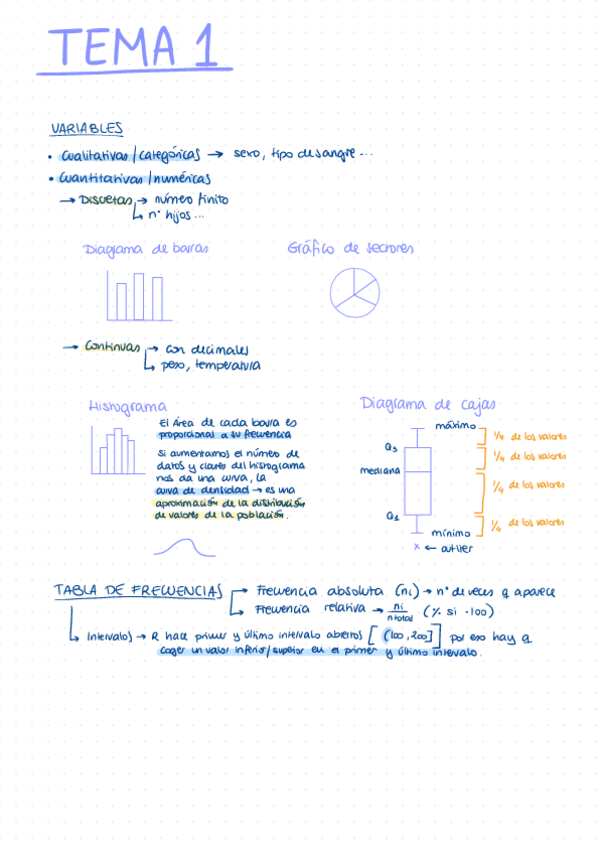 TEMA 1
VARIABLES
• Cualitativas/categóricas → sexo, tipo de sangre ...
• Cuantitativas/numéricas
→ Discretas → número finito
↳ nº hijos ...
Diagrama de barras
Gráfico de sectores
→ Continuas → con decimales
↳ peso, temperatura
Histograma
El Área de cada barra es
proporcional a su frecuencia
Si aumentamos el número de
datos y clases del histograma
nos da una curva, la
curva de densidad → es una
aproximación de la distribución
de valores de la población.
Diagrama de cajas
máximo
Q3
mediana
Q1
mínimo
x ← outlier
1/4 de los valores
1/4 de los valores
1/4 de los valores
1/4 de los valores
TABLA DE FRECUENCIAS → Frecuencia absoluta (ni) → nº de veces q aparece
→ Frecuencia relativa → ni/ntotal (% si ·100)
↳ Intervalos → R hace primer y último intervalo abiertos [(100,200]] por eso hay q
coger un valor inferior/superior en el primer y último intervalo.